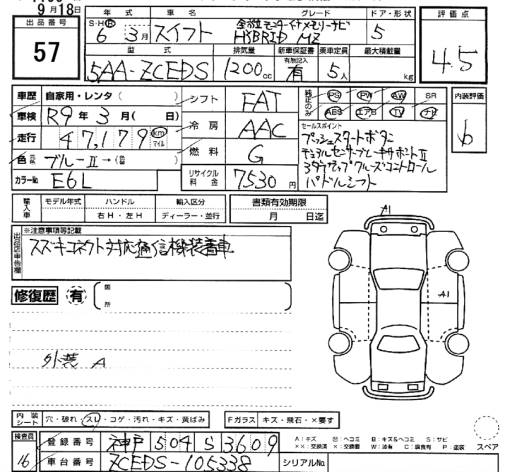 9月18日
出品番号
57
年式 車名 グレード ドア・形状 評価点
S・H・R 6 3月 スイフト 全方位モニターナビメモリーナビ HYBRID MZ 5
4.5
型式 排気量 新車保証書 乗車定員 最大積載量
5AA-ZCEDS 1200cc 有無記入 有 5人 kg
車歴 自家用・レンタ( ) シフト FAT 純正のみ PS PW AW SR 内装評価
車検 R9年3月(日) 冷房 AAC ABS エアB TV ナビ b
走行 47,179 km マイル 燃料 G
セールスポイント
プッシュスタートボタン
デュアルセンサーブレーキサポートⅡ
アダプティブクルーズコントロール
パドルシフト
色 元色 ブルーⅡ→(色)
カラーNo E6L リサイクル料金 7530円
輸入車 モデル年式 ハンドル 輸入区分 書類有効期限
年 右H・左H ディーラー・並行 月 日迄
※注意事項等記載
出品店申告欄
スズキコネクト対応通信機装着車
A1
修復歴 有 箇所
A1
外装 A
内装シート 穴・破れ・スレ・コゲ・汚れ・キズ・黄ばみ Fガラス キズ・飛石・×要す
A:キズ U:ヘコミ B:キズ&ヘコミ S:サビ
××:交換済 ×:交換 W:波有 C:腐食有 P:塗装
スペア
検査員 登録番号 神戸504 S 3609
16 車台番号 ZCEDS-105338 シリアルNo.